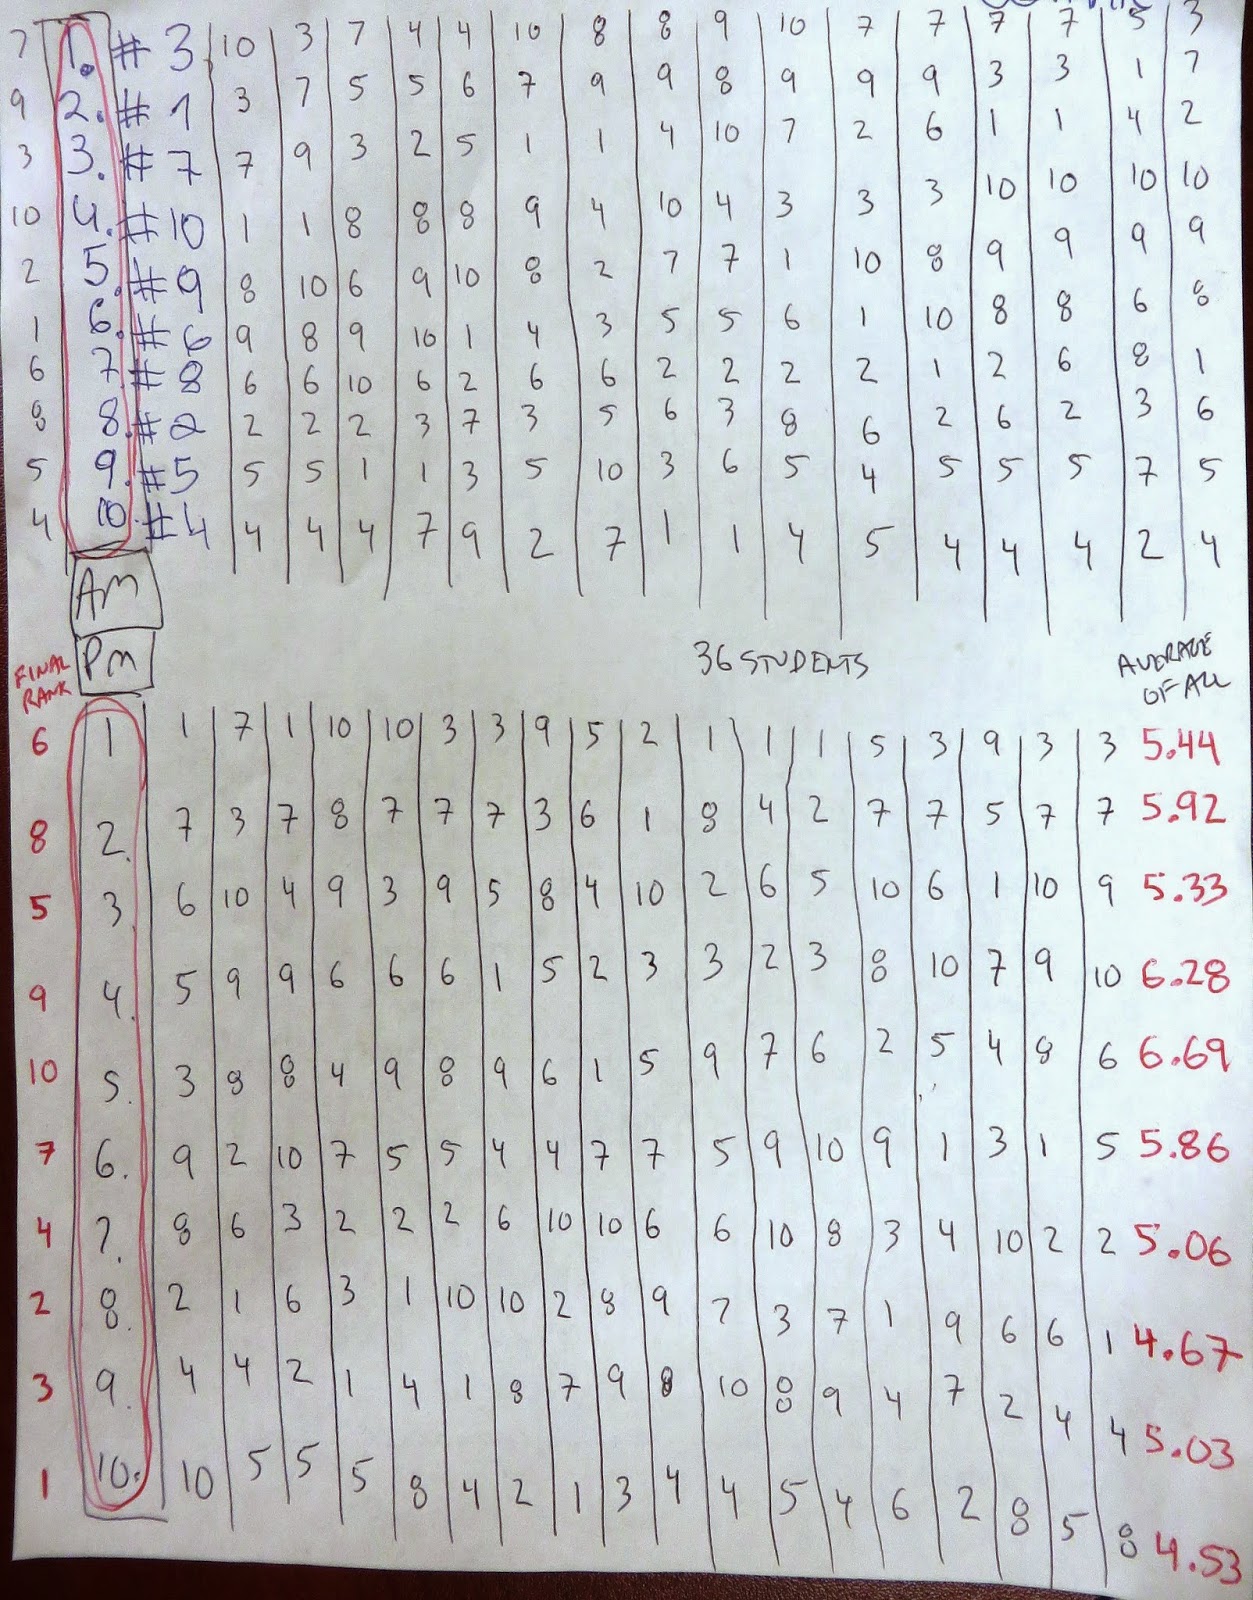 7 1. # 3 10 3 7 4 4 10 8 8 9 10 7 7 7 7 5 3
9 2. # 1 3 7 5 5 6 7 9 9 8 9 9 9 3 3 1 7
3 3. # 7 7 9 3 2 5 1 1 4 10 7 2 6 1 1 4 2
10 4. # 10 1 1 8 8 8 9 4 10 4 3 3 3 10 10 10 10
2 5. # 9 8 10 6 9 10 8 2 7 7 1 10 8 9 9 9 9
1 6. # 6 9 8 9 10 1 4 3 5 5 6 1 10 8 8 6 8
6 7. # 8 6 6 10 6 2 6 6 2 2 2 2 1 2 6 8 1
8 8. # 2 2 2 2 3 7 3 5 6 3 8 6 2 6 2 3 6
5 9. # 5 5 5 1 1 3 5 10 3 6 5 4 5 5 5 7 5
4 10. # 4 4 4 4 7 9 2 7 1 1 4 5 4 4 4 2 4
AM
FINAL RANK PM 36 STUDENTS AVERAGE OF ALL
6 1 1 7 1 10 10 3 3 9 5 2 1 1 1 5 3 9 3 3 5.44
8 2. 7 3 7 8 7 7 7 3 6 1 8 4 2 7 7 5 7 7 5.92
5 3 6 10 4 9 3 9 5 8 4 10 2 6 5 10 6 1 10 9 5.33
9 4. 5 9 9 6 6 6 1 5 2 3 3 2 3 8 10 7 9 10 6.28
10 5. 3 8 8 4 9 8 9 6 1 5 9 7 6 2 5 4 8 6 6.69
7 6. 9 2 10 7 5 5 4 4 7 7 5 9 10 9 1 3 1 5 5.86
4 7. 8 6 3 2 2 2 6 10 10 6 6 10 8 3 4 10 2 2 5.06
2 8. 2 1 6 3 1 10 10 2 8 9 7 3 7 1 9 6 6 1 4.67
3 9. 4 4 2 1 4 1 8 7 9 8 10 8 9 4 7 2 4 4 5.03
1 10. 10 5 5 5 8 4 2 1 3 4 4 5 4 6 2 8 5 8 4.53